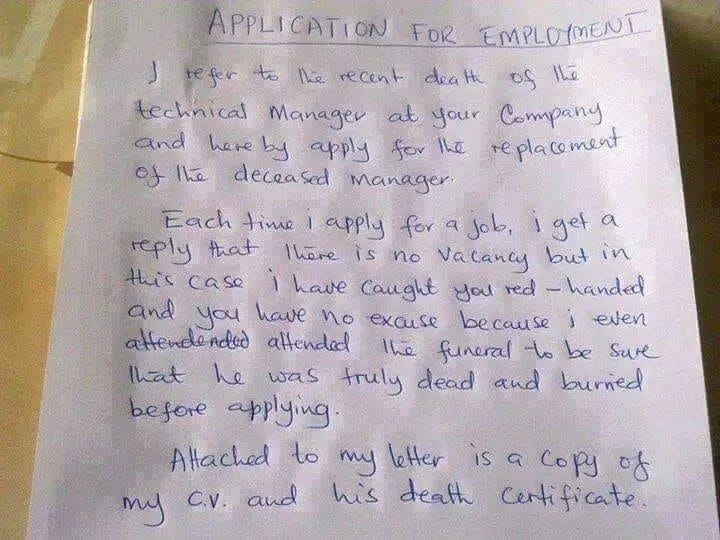 APPLICATION FOR EMPLOYMENT
I refer to the recent death of the
technical Manager at your Company
and here by apply for the replacement
of the deceased manager.
Each time i apply for a job, i get a
reply that there is no vacancy but in
this case i have caught you red-handed
and you have no excuse because i even
attendended attended the funeral to be sure
that he was truly dead and buried
before applying.
Attached to my letter is a copy of
my C.V. and his death certificate.